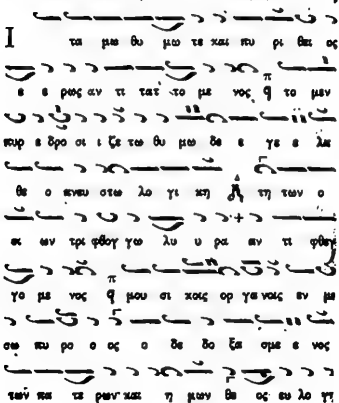 Ι τα μω θυ μω τε και πυ ρι θει ος
ε ε ρως αν τι τατ το με νος π q το μεν
πυρ ε δρο σι ι ζε τω θυ μω δε ε γε ε λα
θε ο πνευ στω λο γι κη τη των ο
σι ων τρι φθογ γω λυ υ ρα αν τι φθεγ
γο με νος π q μου σι κοις ορ γα νοις εν με
σω πυ ρο ο ος ο δε δο ξα σμε ε νος
των πα τε ρων και η μων θε ος ευ λο γη